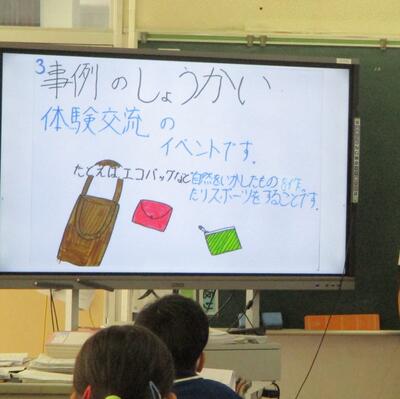 3 事例のしょうかい
体験交流の
イベントです。
たとえばエコバックなど自然をいかしたものを作っ
たりスポーツをすることです。